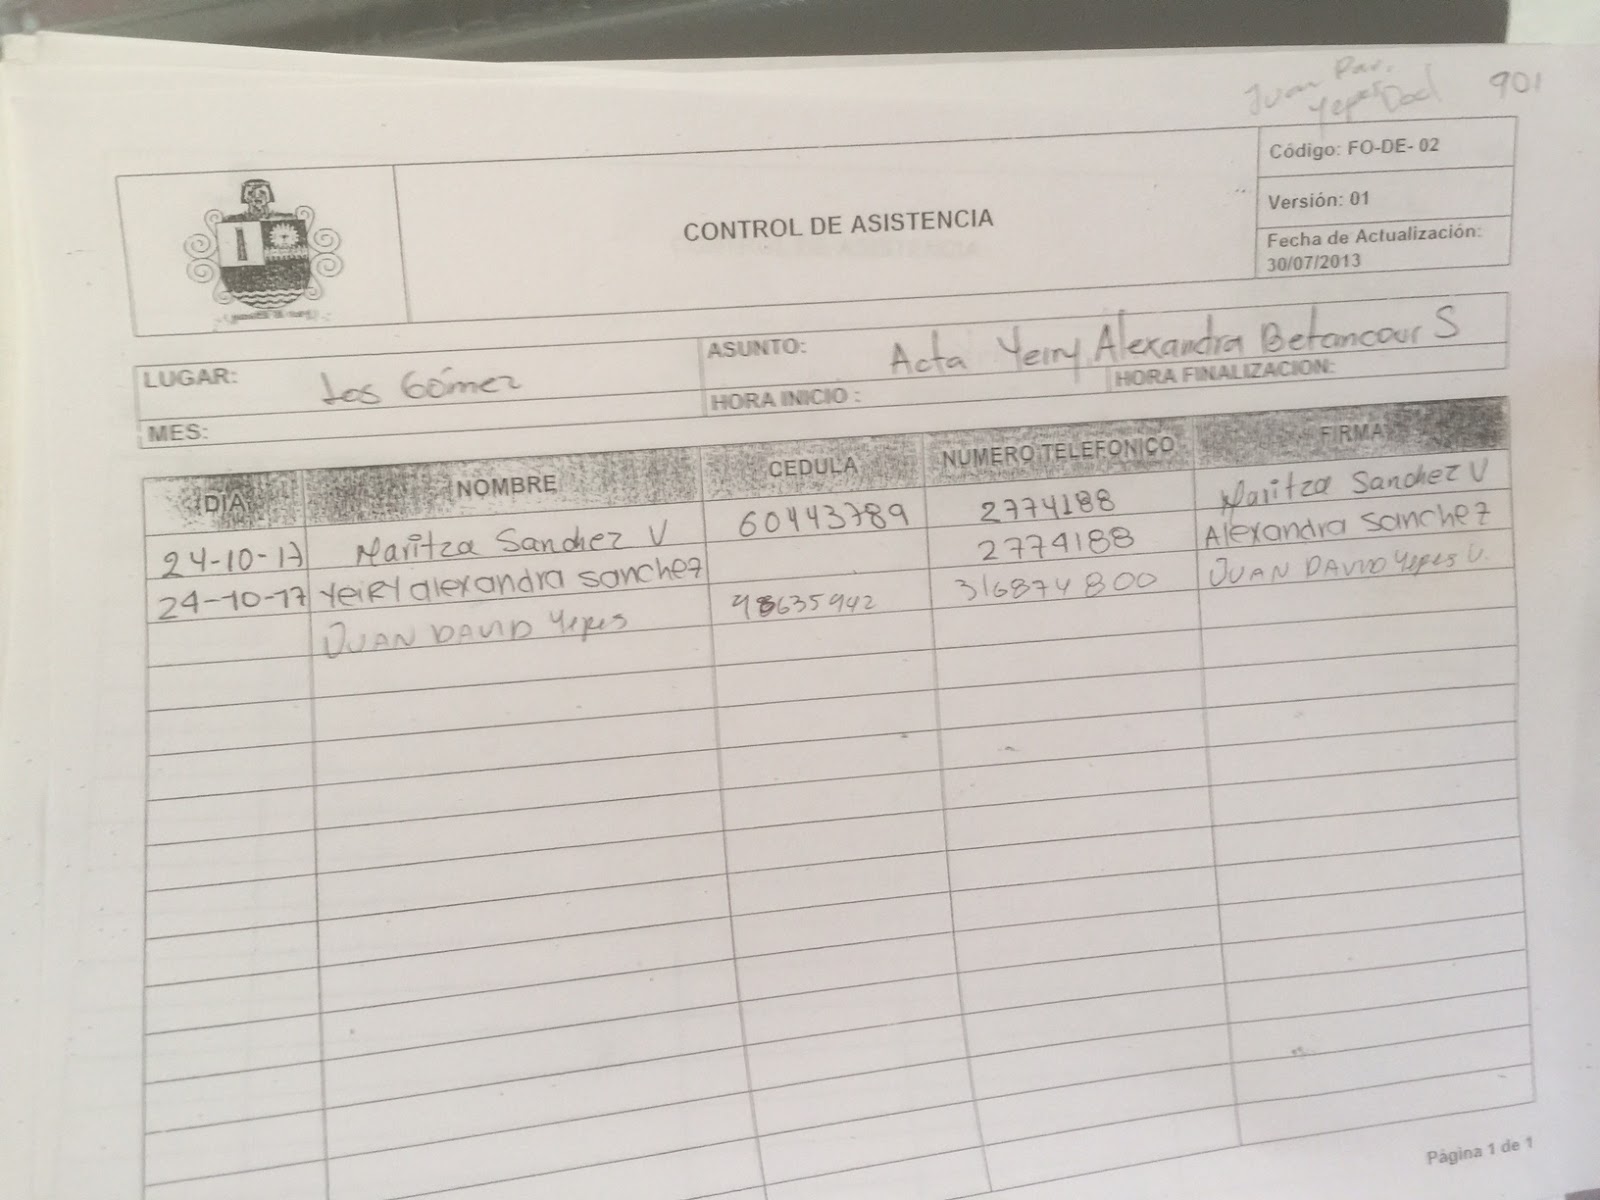 Juan Pav.
Yepes Dod 901
Código: FO-DE- 02
CONTROL DE ASISTENCIA
Versión: 01
Fecha de Actualización:
30/07/2013
LUGAR: Los Gómez
ASUNTO: Acta Yeiry Alexandra Betancour S
HORA INICIO :
HORA FINALIZACION:
MES:
DIA NOMBRE CEDULA NUMERO TELEFONICO FIRMA
24-10-17 Maritza Sanchez V 60443789 2774188 Maritza Sanchez V
24-10-17 Yeiry alexandra sanchez 2774188 Alexandra Sanchez
JUAN DAVID Yepes 98635942 316874800 JUAN DAVID Yepes V.
Página 1 de 1